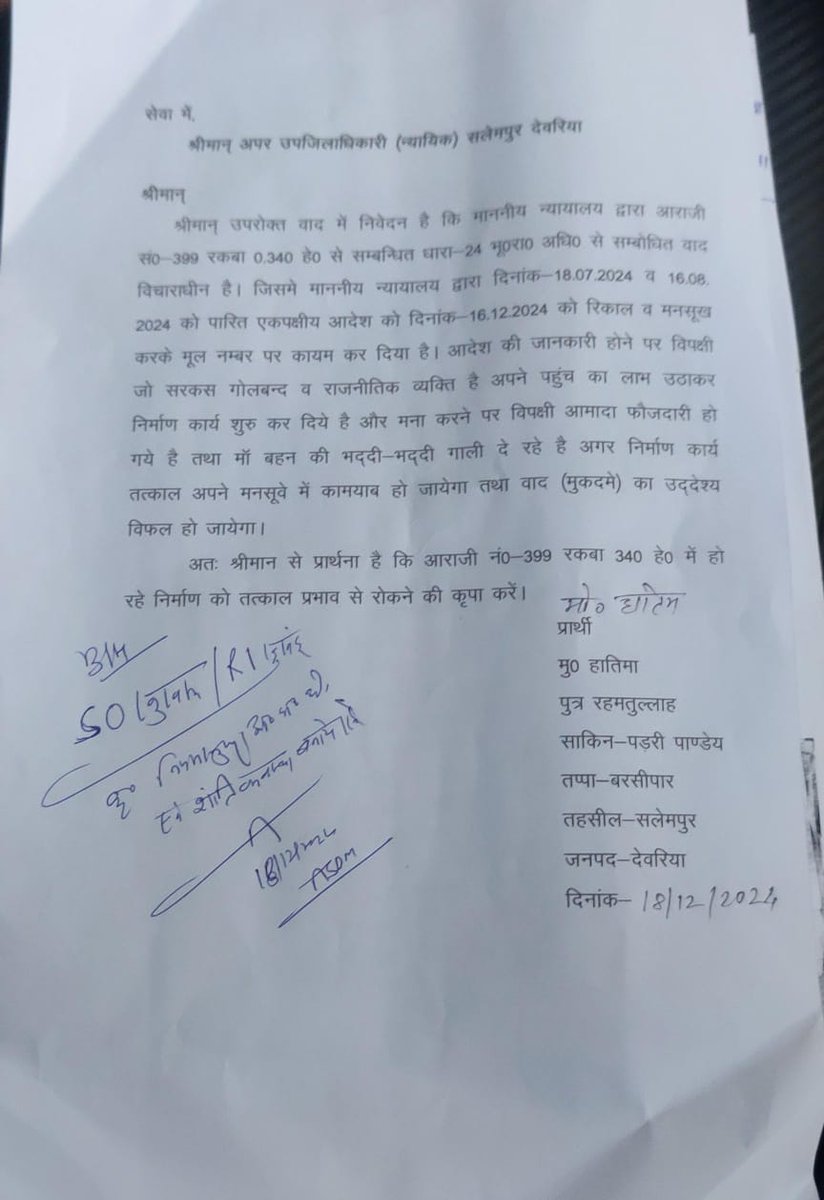 सेवा में,
श्रीमान् अपर उपजिलाधिकारी (न्यायिक) सलेमपुर देवरिया
श्रीमान्
श्रीमान् उपरोक्त वाद में निवेदन है कि माननीय न्यायालय द्वारा आराजी
सं0–399 रकबा 0.340 हे0 से सम्बन्धित धारा–24 भू0रा0 अधि0 से सम्बोधित वाद
विचाराधीन है। जिसमे माननीय न्यायालय द्वारा दिनांक–18.07.2024 व 16.08.
2024 को पारित एकपक्षीय आदेश को दिनांक–16.12.2024 को रिकाल व मनसूख
करके मूल नम्बर पर कायम कर दिया है। आदेश की जानकारी होने पर विपक्षी
जो सरकस गोलबन्द व राजनीतिक व्यक्ति है अपने पहुंच का लाभ उठाकर
निर्माण कार्य शुरु कर दिये है और मना करने पर विपक्षी आमादा फौजदारी हो
गये है तथा माॅ बहन की भद्दी–भद्दी गाली दे रहे है अगर निर्माण कार्य
तत्काल अपने मनसूवे में कामयाब हो जायेगा तथा वाद (मुकदमे) का उद्देश्य
विफल हो जायेगा।
अतः श्रीमान से प्रार्थना है कि आराजी नं0–399 रकबा 340 हे0 में हो
रहे निर्माण को तत्काल प्रभाव से रोकने की कृपा करें।
मो०
प्रार्थी
मु0 हातिमा
पुत्र रहमतुल्लाह
साकिन–पड़री पाण्डेय
तप्पा–बरसीपार
तहसील–सलेमपुर
जनपद–देवरिया
दिनांक– 18/12/2024
SO / RI
कृ० नियमानुसार
एवं शांति व्यवस्था बनाये रखें
ASDM